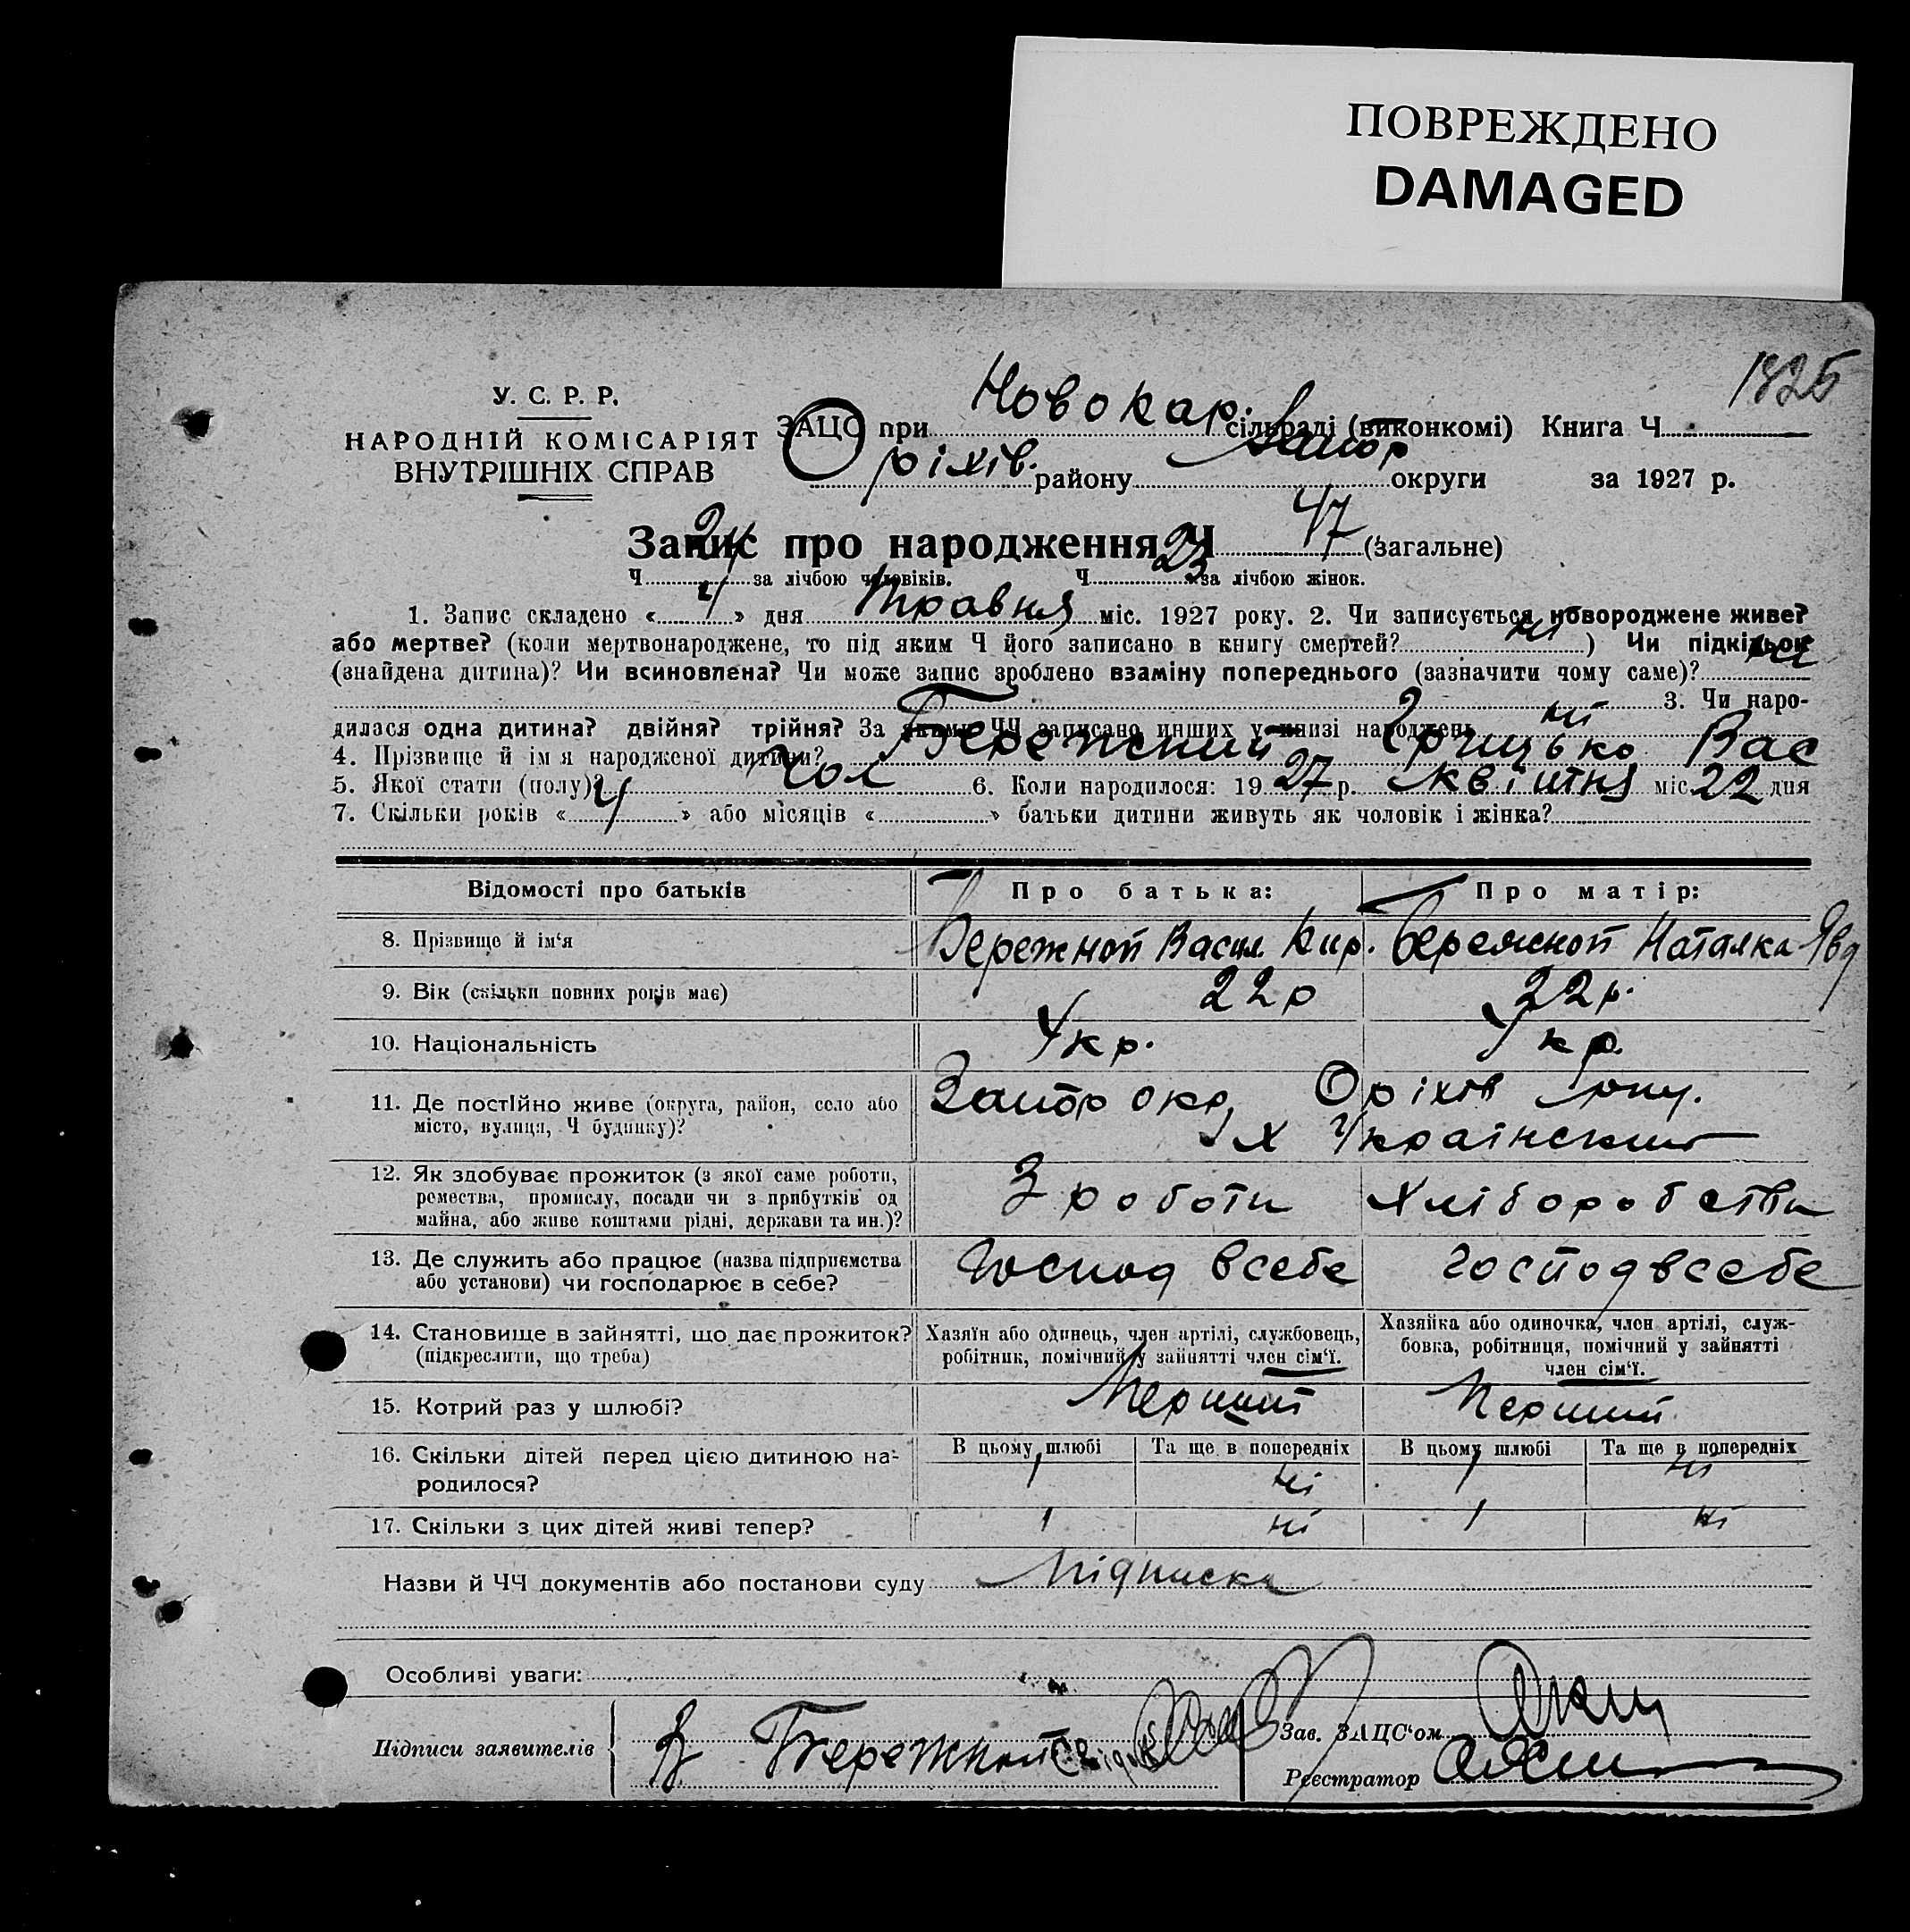 ПОВРЕЖДЕНО
DAMAGED
1825
У. С. Р. Р.
НАРОДНІЙ КОМІСАРІЯТ
ВНУТРІШНІХ СПРАВ
ЗАЦС при Новокар. сільраді (виконкомі) Книга Ч
Оріхів. району Запор округи за 1927 р.
Запис про народження Ч 47 (загальне)
Ч 24 за лічбою чоловіків. Ч 23 за лічбою жінок.
1. Запис складено « 4 » дня Травня міс. 1927 року. 2. Чи записується новороджене живе?
або мертве? (коли мертвонароджене, то під яким Ч його записано в книгу смертей? ні ) Чи підкідьок
(знайдена дитина)? Чи всиновлена? Чи може запис зроблено взаміну попереднього (зазначити чому саме)? ні
3. Чи наро-
дилася одна дитина? двійня? трійня? За якими ЧЧ записано инших у книзі народжень ні
4. Прізвище й ім я народженої дитини? Бережний Грицько Вас
5. Якої стати (полу)? Чол 6. Коли народилося: 19 27 р. квітня міс. 22 дня
7. Скільки років « 4 » або місяців « » батьки дитини живуть як чоловік і жінка?
Відомості про батьків Про батька: Про матір:
8. Прізвище й ім‘я Бережной Васил. Кир. Бережной Наталка Явд
9. Вік (скільки повних років має) 22 р 22 р.
10. Національність Укр. Укр.
11. Де постійно живе (округа, район, село або Запор окр, Оріхів
місто, вулиця, Ч будинку)? х Украінский
12. Як здобуває прожиток (з якої саме роботи, З роботи хліборобства
ремества, промислу, посади чи з прибутків од
майна, або живе коштами рідні, держави та ин.)?
13. Де служить або працює (назва підприємства Господ всебе господ всебе
або установи) чи господарює в себе?
14. Становище в зайнятті, що дає прожиток? Хазяїн або одинець, член артілі, службовець, Хазяйка або одиночка, член артілі, служ-
(підкреслити, що треба) робітник, помічний у зайнятті член сім‘ї. бовка, робітниця, помічний у зайнятті
член сім‘ї.
15. Котрий раз у шлюбі? Перший Перший
16. Скільки дітей перед цією дитиною на- В цьому шлюбі Та ще в попередніх В цьому шлюбі Та ще в попередніх
родилося? 1 ні 1 ні
17. Скільки з цих дітей живі тепер? 1 ні 1 ні
Назви й ЧЧ документів або постанови суду Підписка
Особливі уваги:
Підписи заявителів В Бережной Зав. ЗАЦС‘ом
Реєстратор